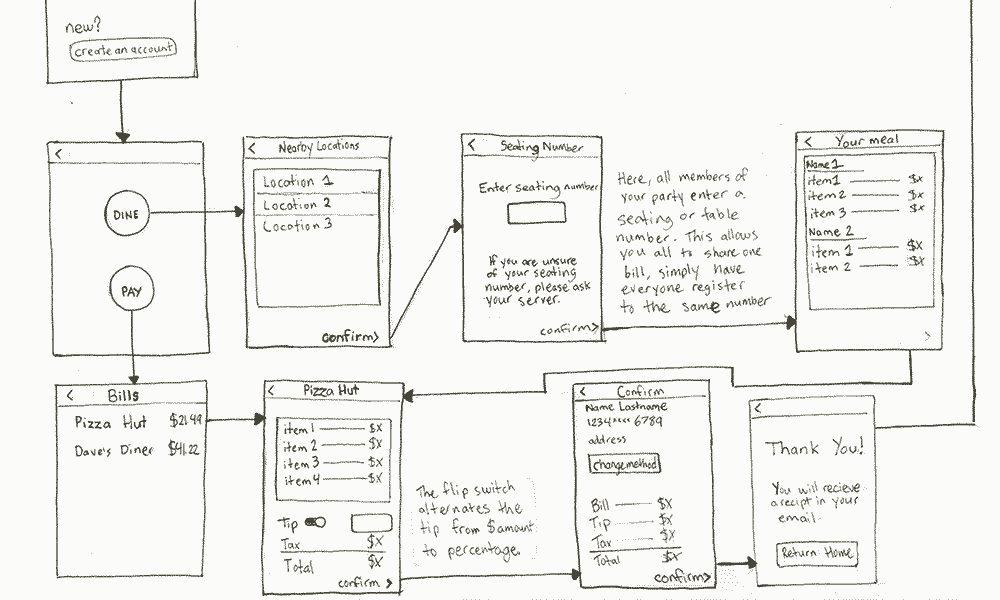 new?
create an account
<
DINE
PAY
< Nearby Locations
Location 1
Location 2
Location 3
confirm>
< Seating Number
Enter seating number
If you are unsure
of your seating
number, please ask
your server.
confirm>
Here, all members of
your party enter a
seating or table
number. This allows
you all to share one
bill, simply have
everyone register
to the same number
< Your meal
Name 1
item1 $x
item2 $x
item 3 $x
Name 2
item 1 $x
item 2 $x
>
< Bills
Pizza Hut $21.49
Dave's Diner $41.22
< Pizza Hut
item1 $X
item 2 $X
item 3 $X
item4 $X
Tip
Tax $X
Total $X
confirm >
The flip switch
alternates the
tip from $amount
to percentage.
< Confirm
Name Lastname
1234**** 6789
address
change method
Bill $X
Tip $X
Tax $X
Total $X
confirm>
<
Thank You!
You will recieve
a recipt in your
email.
Return Home